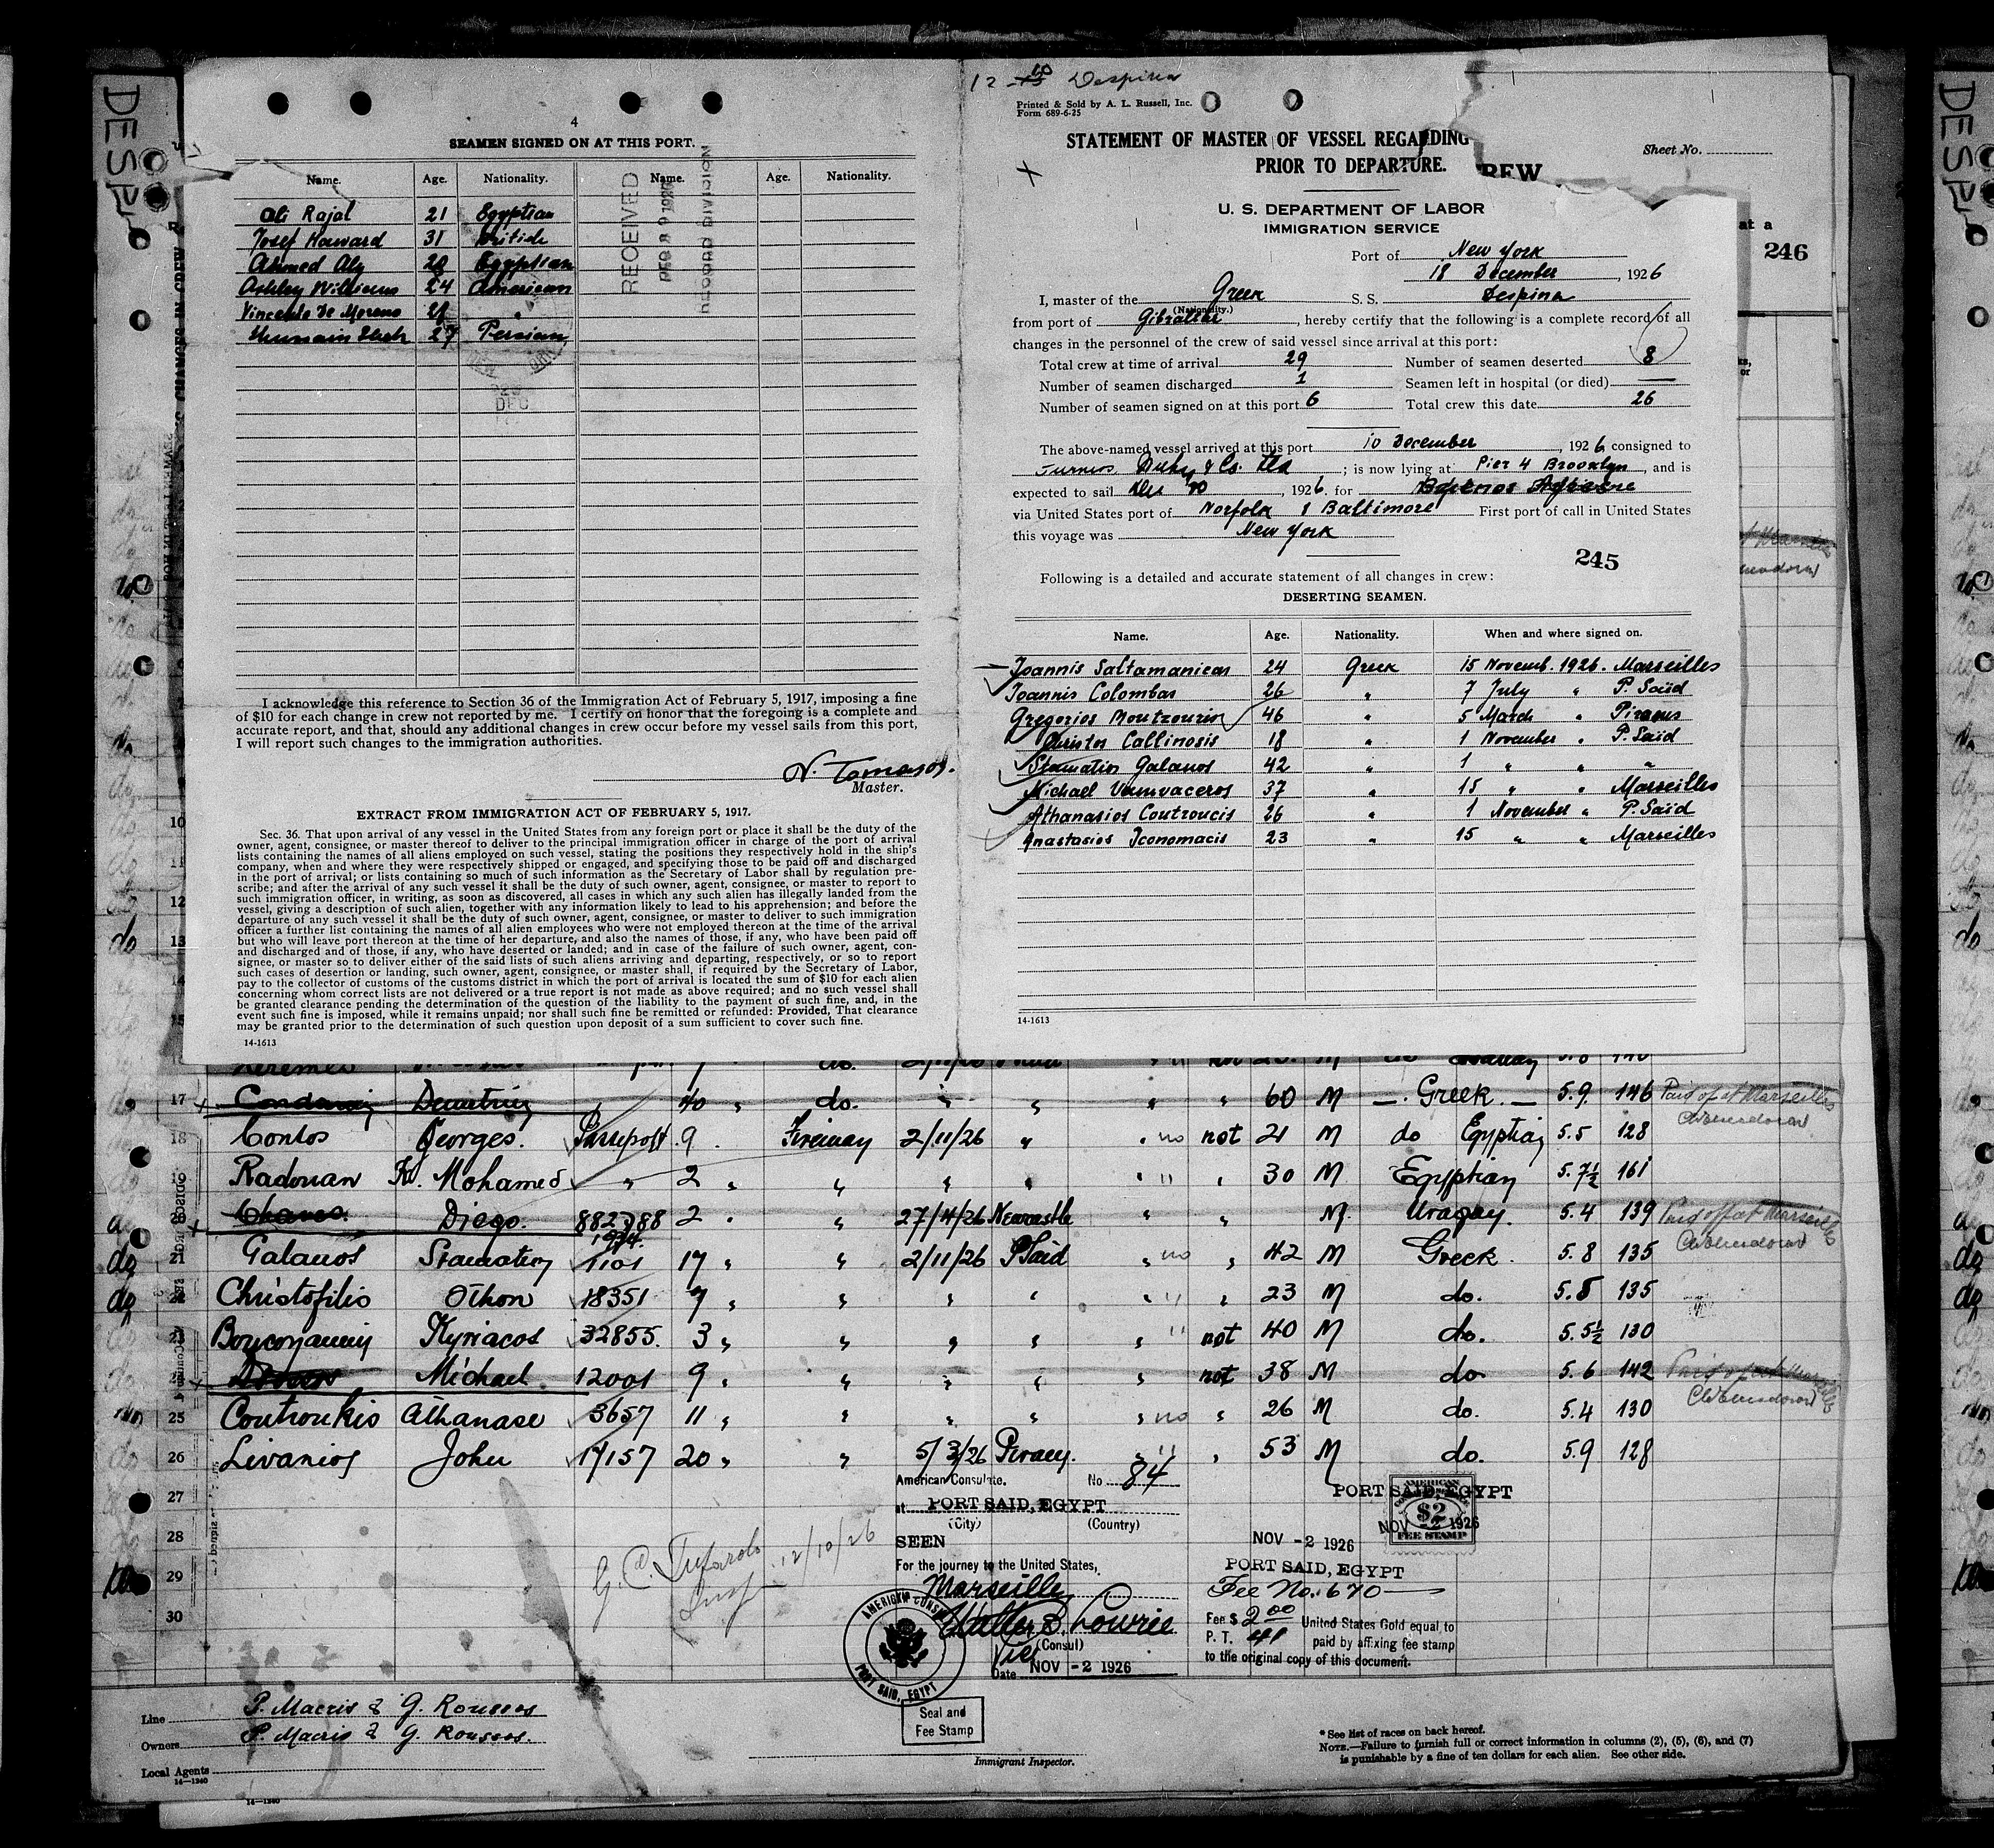 DESP
4
SEAMEN SIGNED ON AT THIS PORT.
Name. Age. Nationality. Name. Age. Nationality.
Ali Rajal 21 Egyptian
Josef Howard 31 British
Ahmed Aly 28 Egyptian
Ashley Williams 24 American
Vincente De Moreno 28 "
27 Persian
RECEIVED
RECORD DIVISION
DEC
I acknowledge this reference to Section 36 of the Immigration Act of February 5, 1917, imposing a fine
of $10 for each change in crew not reported by me. I certify on honor that the foregoing is a complete and
accurate report, and that, should any additional changes in crew occur before my vessel sails from this port,
I will report such changes to the immigration authorities.
N. Tomasos.
Master.
EXTRACT FROM IMMIGRATION ACT OF FEBRUARY 5, 1917.
Sec. 36. That upon arrival of any vessel in the United States from any foreign port or place it shall be the duty of the
owner, agent, consignee, or master thereof to deliver to the principal immigration officer in charge of the port of arrival
lists containing the names of all aliens employed on such vessel, stating the positions they respectively hold in the ship's
company, when and where they were respectively shipped or engaged, and specifying those to be paid off and discharged
in the port of arrival; or lists containing so much of such information as the Secretary of Labor shall by regulation pre-
scribe; and after the arrival of any such vessel it shall be the duty of such owner, agent, consignee, or master to report to
such immigration officer, in writing, as soon as discovered, all cases in which any such alien has illegally landed from the
vessel, giving a description of such alien, together with any information likely to lead to his apprehension; and before the
departure of any such vessel it shall be the duty of such owner, agent, consignee, or master to deliver to such immigration
officer a further list containing the names of all alien employees who were not employed thereon at the time of the arrival
but who will leave port thereon at the time of her departure, and also the names of those, if any, who have been paid off
and discharged and of those, if any, who have deserted or landed; and in case of the failure of such owner, agent, con-
signee, or master so to deliver either of the said lists of such aliens arriving and departing, respectively, or so to report
such cases of desertion or landing, such owner, agent, consignee, or master shall, if required by the Secretary of Labor,
pay to the collector of customs of the customs district in which the port of arrival is located the sum of $10 for each alien
concerning whom correct lists are not delivered or a true report is not made as above required; and no such vessel shall
be granted clearance pending the determination of the question of the liability to the payment of such fine, and, in the
event such fine is imposed, while it remains unpaid; nor shall such fine be remitted or refunded: Provided, That clearance
may be granted prior to the determination of such question upon deposit of a sum sufficient to cover such fine.
14-1613
12 Despina
Printed & Sold by A. L. Russell, Inc.
Form 689-6-25
STATEMENT OF MASTER OF VESSEL REGARDING
PRIOR TO DEPARTURE.
REW
Sheet No.
U. S. DEPARTMENT OF LABOR
IMMIGRATION SERVICE
at a
246
Port of New York
18 December, 1926
I, master of the Greek S. S. Despina
(Nationality.)
from port of Gibraltar, hereby certify that the following is a complete record of all
changes in the personnel of the crew of said vessel since arrival at this port:
Total crew at time of arrival 29 Number of seamen deserted 8
Number of seamen discharged 1 Seamen left in hospital (or died) —
Number of seamen signed on at this port 6 Total crew this date 26
The above-named vessel arrived at this port 10 December, 1926 consigned to
& Co. Ltd; is now lying at Pier 4 Brooklyn, and is
expected to sail Dec 20, 1926. for
via United States port of Norfolk & Baltimore First port of call in United States
this voyage was New York
245
Following is a detailed and accurate statement of all changes in crew:
DESERTING SEAMEN.
Name. Age. Nationality. When and where signed on.
Joannis Saltamanicas 24 Greek 15 Novemb. 1926. Marseilles
Joannis Colombas 26 " 7 July " P. Saïd
Gregorios Moutzouris 46 " 5 March " Piraeus
Christos Callinosis 18 " 1 November " P. Saïd
Stamatios Galanos 42 " 1 " " "
Michael Vamvaceros 37 " 15 " " Marseilles
Athanasios Coutroucis 26 " 1 November " P. Saïd
Anastasios Iconomacis 23 " 15 " " Marseilles
14-1613
17 Demetrius 40 " do. " " " " 60 M — Greek — 5.9 146 Paid off at Marseilles
18 Contos Georges. Passeport 9 Fireman 2/11/26 " " no not 21 M do Egyptian 5.5 128
19 Radouan Kr. Mohamed " 2 " " " " " " " 30 M Egyptian 5.7½ 161
20 Chaves Diego. 882788 2 " " 27/4/26 Newcastle " " M. Uraguay. 5.4 139 Paid off at Marseilles
21 Galanos Stamatios 1101 17 " " 2/11/26 P Said " no " 42 M Greek. 5.8 135
22 Christofilis Othon 18351 7 " " " " " " " 23 M do. 5.8 135
23 Kyriacos 32855. 3 " " " " " " not 40 M do. 5.5½ 130
24 Michael 12001 9 " " " " " not 38 M do 5.6 142
25 Coutroukis Athanase 3657 11 " " " " " no " 26 M do. 5.4 130
26 Livanios John 17157 20 " " 5/3/26 Piraeus. " " " 53 M do. 5.9 128
27
28
29
30
American Consulate. No 84
at PORT SAID, EGYPT
(City) (Country)
SEEN
For the journey to the United States,
Marseille
Walter B. Lowrie
Vice (Consul)
Date NOV -2 1926
AMERICAN CONSULATE PORT SAID, EGYPT
Seal and
Fee Stamp
12/10/26
PORT SAID, EGYPT
AMERICAN
$2
FEE STAMP
NOV -2 1926
NOV -2 1926
PORT SAID, EGYPT
Fee No. 670 —
Fee $ 2.00 United States Gold equal to
P. T. 41 paid by affixing fee stamp
to the original copy of this document.
Line P. Macris & G. Roussos
Owners P. Macris & G. Roussos.
Local Agents
14—1240
Immigrant Inspector.
* See list of races on back hereof.
NOTE.—Failure to furnish full or correct information in columns (2), (5), (6), and (7)
is punishable by a fine of ten dollars for each alien. See other side.
14—1240
DESP